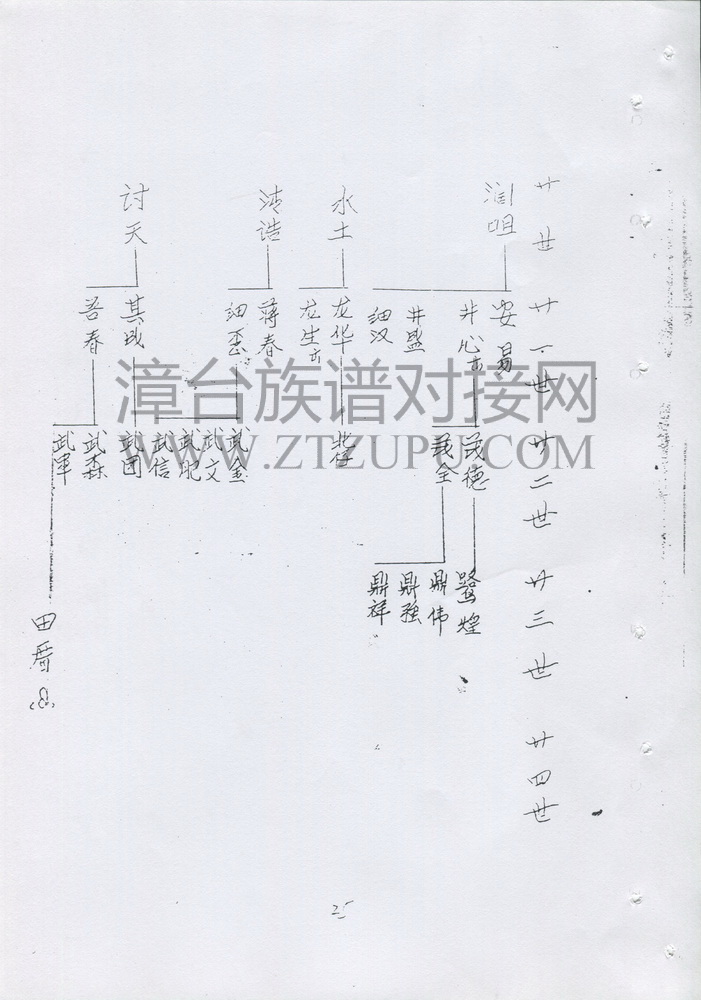 廿世
廿一世
廿二世
廿三世
廿四世
润咀
水土
清诰
讨天
安易
井心
井盛
细汉
龙华
龙生
蒋春
细歪
其成
吾春
茂德
茂全
武金
武文
武肥
武信
武团
武森
武军
鹭煌
鼎伟
鼎强
鼎祥
田厝(3)
漳台族谱对接网
WWW.ZTZUPU.COM
25